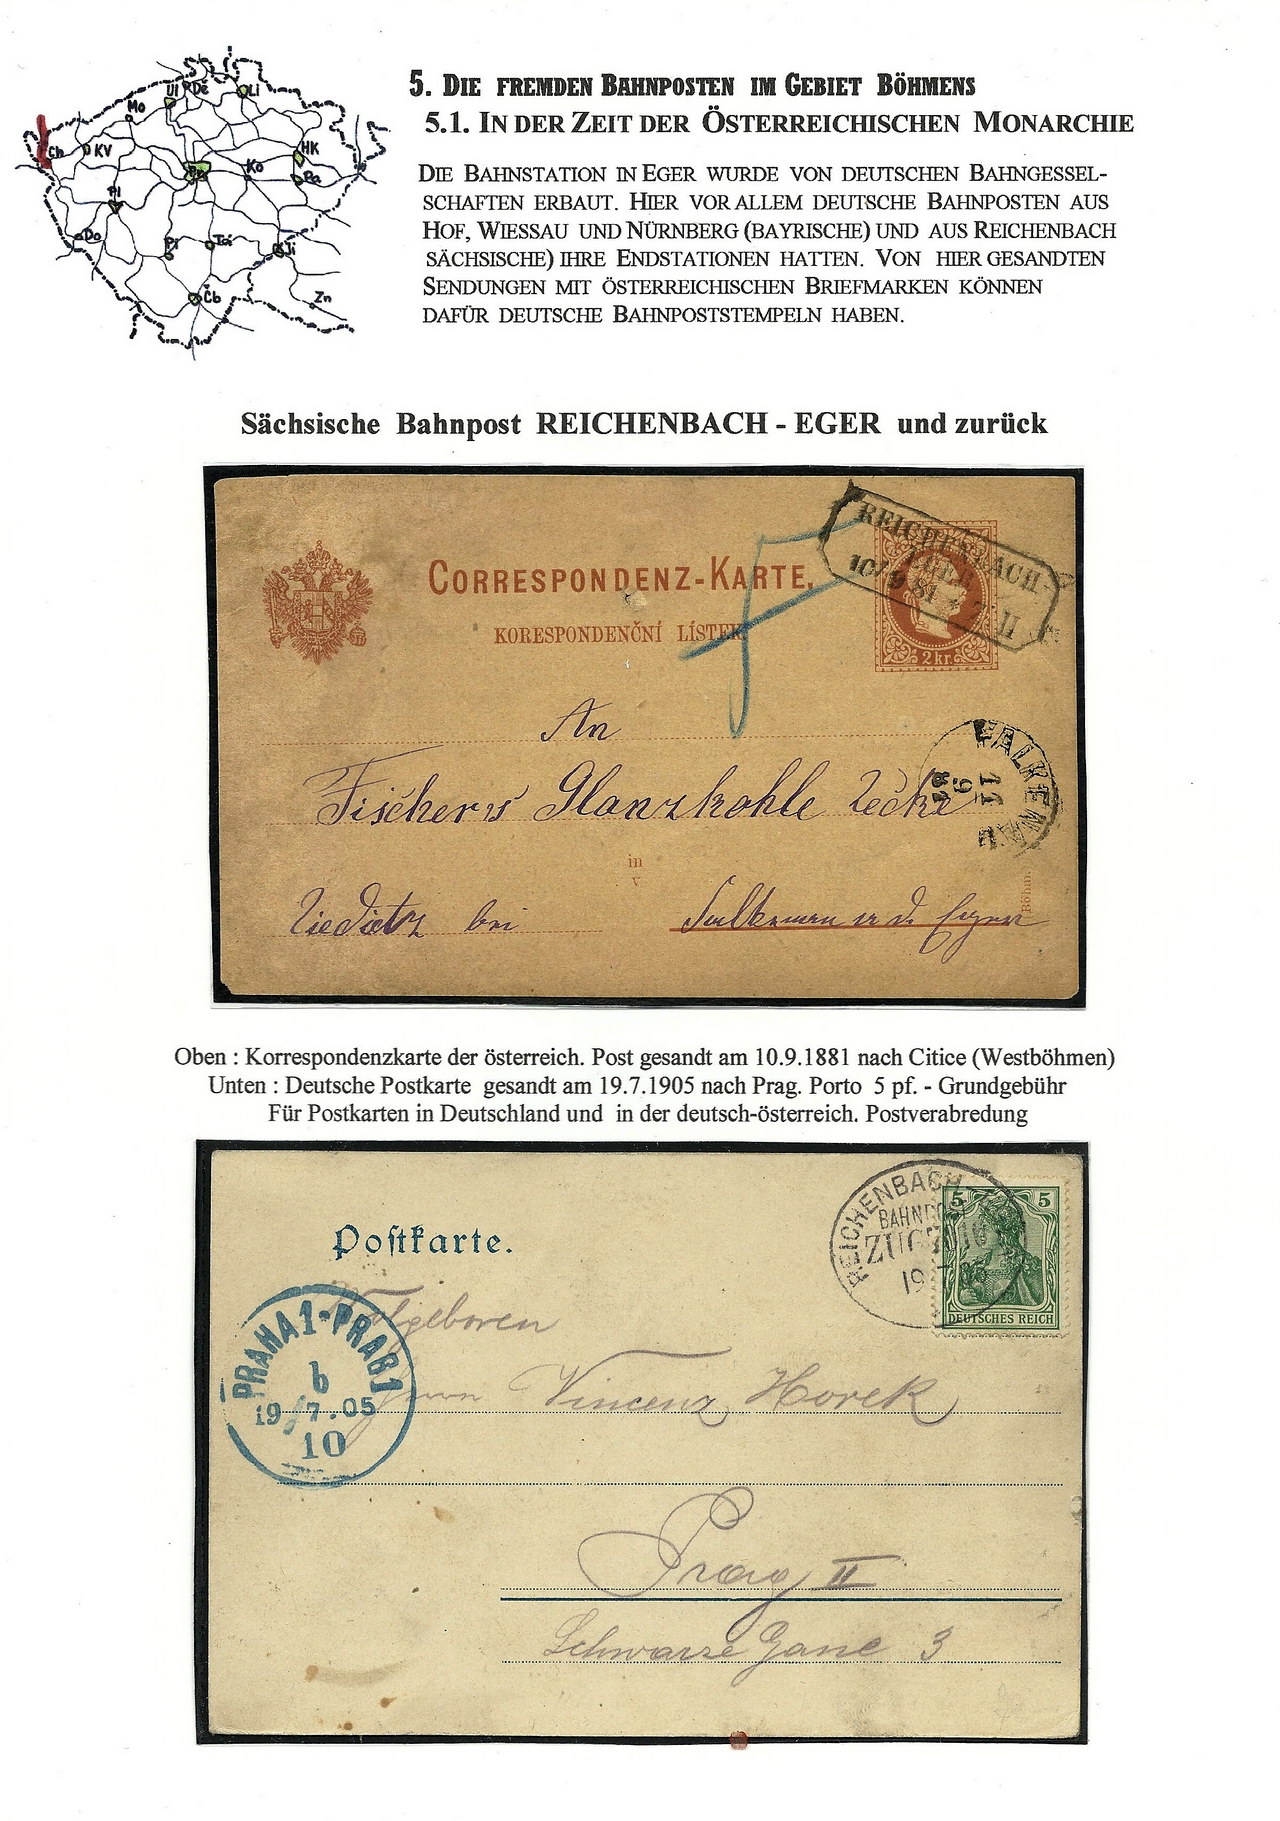 5. DIE FREMDEN BAHNPOSTEN IM GEBIET BÖHMENS
5.1. IN DER ZEIT DER ÖSTERREICHISCHEN MONARCHIE
DIE BAHNSTATION IN EGER WURDE VON DEUTSCHEN BAHNGESSEL-
SCHAFTEN ERBAUT. HIER VOR ALLEM DEUTSCHE BAHNPOSTEN AUS
HOF, WIESSAU UND NÜRNBERG (BAYRISCHE) UND AUS REICHENBACH
SÄCHSISCHE) IHRE ENDSTATIONEN HATTEN. VON HIER GESANDTEN
SENDUNGEN MIT ÖSTERREICHISCHEN BRIEFMARKEN KÖNNEN
DAFÜR DEUTSCHE BAHNPOSTSTEMPELN HABEN.
Ul Dě Li
Mo
Ch KV HK
Ko Pa
Pl
Do Pi Tá Ji
Čb Zn
Sächsische Bahnpost REICHENBACH - EGER und zurück
CORRESPONDENZ-KARTE.
KORESPONDENČNÍ LÍSTEK.
REICHENBACH-
EGER
10/9 81 II
2 kr.
An
Fischer's Glanzkohle Zeche
FALKENAU
11
9
81
in
v
Ziedietz bei Falkenau a d. Eger
Böhm.
Oben : Korrespondenzkarte der österreich. Post gesandt am 10.9.1881 nach Citice (Westböhmen)
Unten : Deutsche Postkarte gesandt am 19.7.1905 nach Prag. Porto 5 pf. - Grundgebühr
Für Postkarten in Deutschland und in der deutsch-österreich. Postverabredung
Postkarte.
REICHENBACH-
BAHNPOST
ZUG
19 7 05
5 5
DEUTSCHES REICH
PRAHA 1-PRAG 1
b
19/7.05
10
Wolgeboren
Herrn Vincenz Horek
Prag II
Schwarze Gane 3